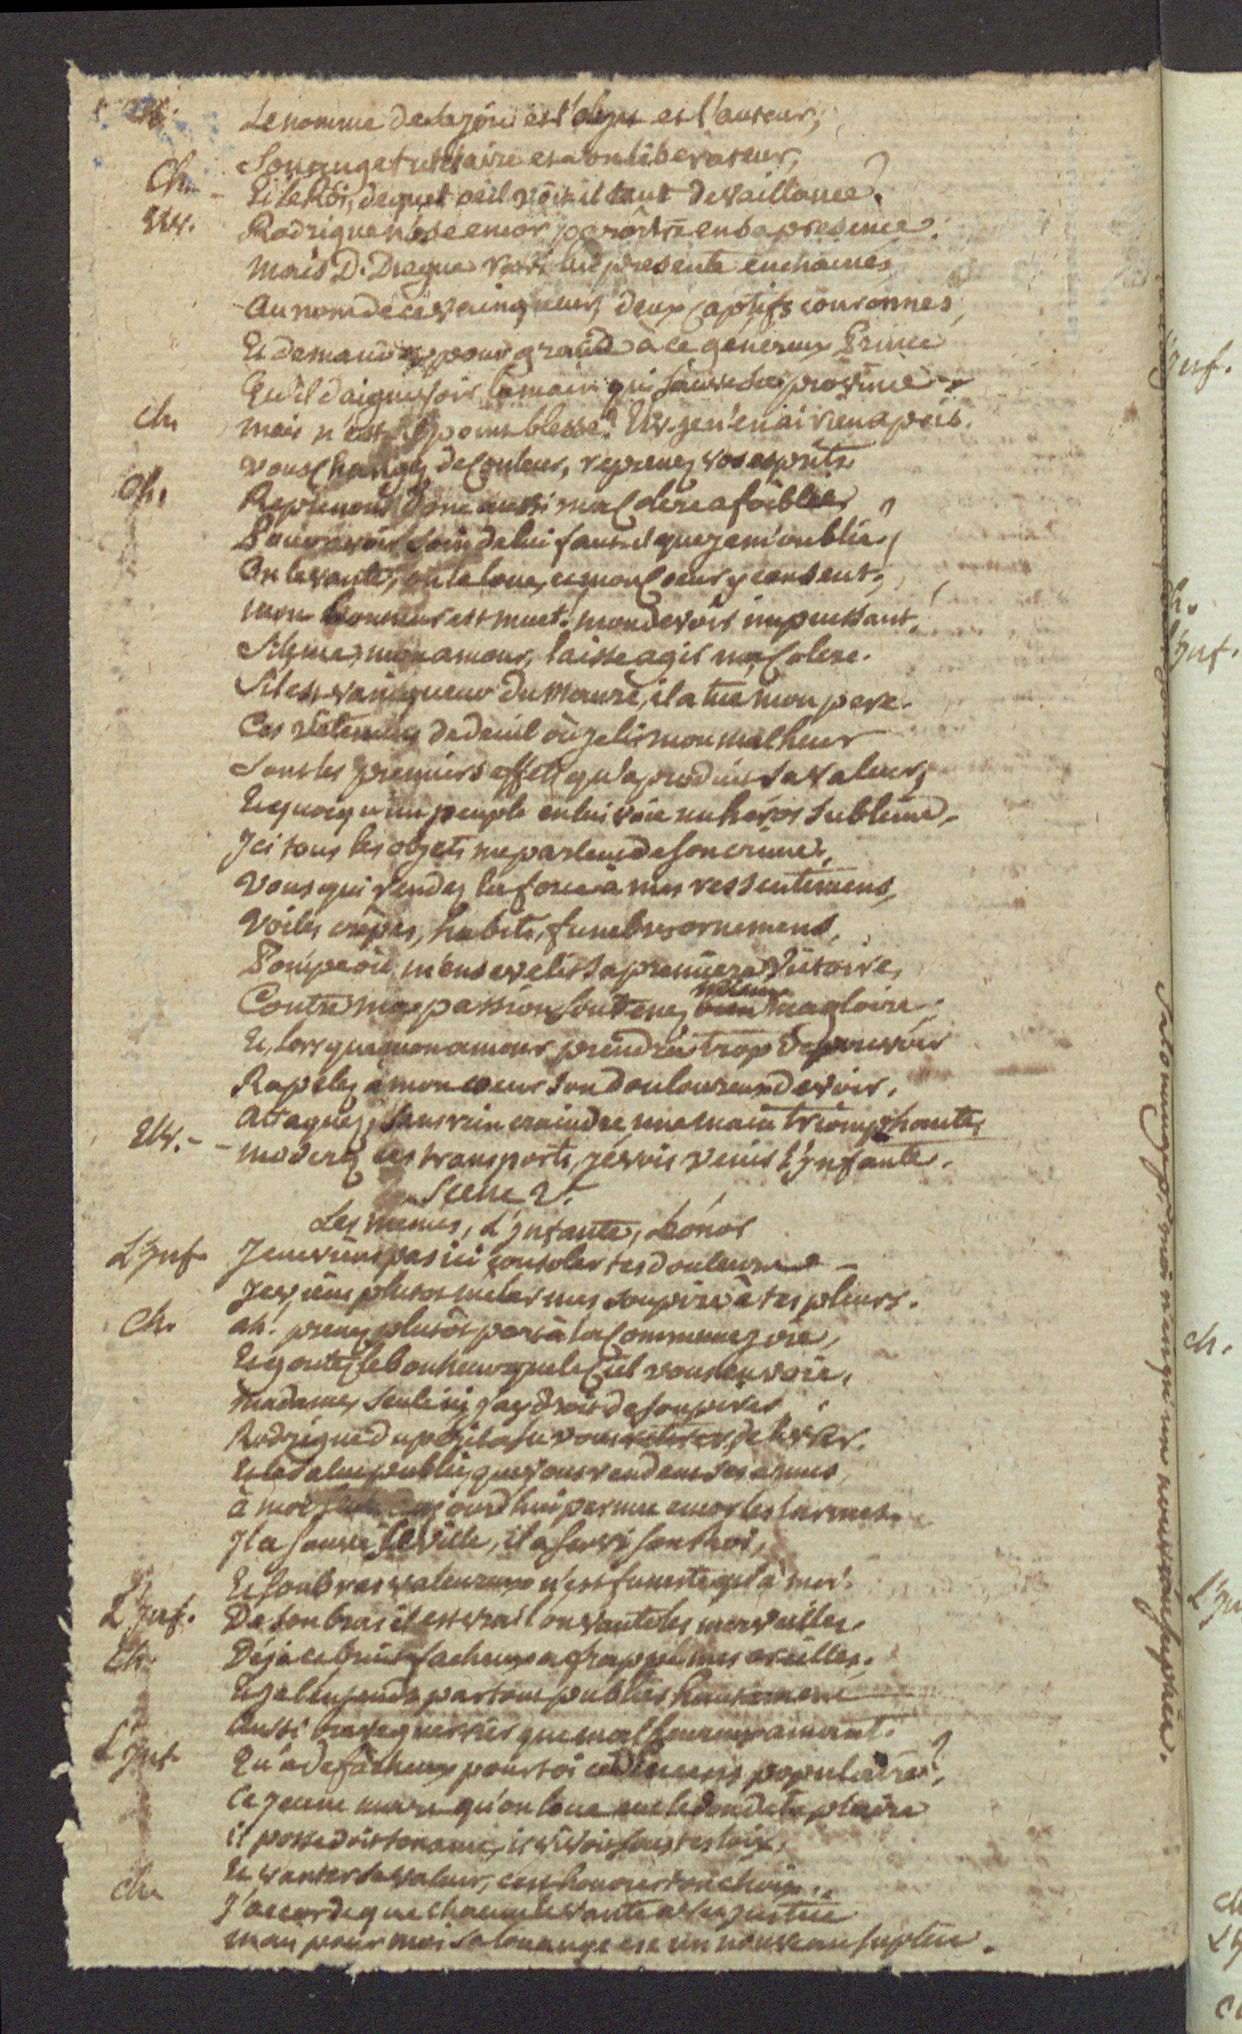 Le nomme de sa joie et l'objet et l'auteur,
Son ange tutelaire et son liberateur,
Ch. - Et le Roi, de quel oeil voit-il tant de vaillance?
Elv. Rodrigue n'ose encor paroître en sa presence.
mais D. Diegue ravi lui presente enchainés
Au nom de ce vainqueur, deux captifs couronnes,
Et demande pour grace à ce genereux Prince
Qu'il daigne voir la main qui sauve sa province
ch. mais n'est-il point blessé? Elv. je n'en ai rien apris.
vous changez de couleur, reprenez vos esprits
Ch. Reprenons donc aussi ma colere afoiblie,
Pour avoir soin de lui faut-il que je m'oublie?
On le vante, on le loue, et mon coeur y consent;
mon honneur est muet! mon devoir impuissant!
Silence, mon amour, laisse agir ma colere.
S'il est vainqueur du Maure, il a tué mon pere.
Ces vêtemens de deuil où je lis mon malheur
Sont les premiers effets qu'a produit sa valeur,
Et quoiqu'un peuple en lui voie un heros sublime,
Ici tous les objets me parlent de son crime,
Vous qui rendez la force à mes ressentimens,
Voiles crêpes, habits, funebres ornemens,
Pompe où m'ensevelit sa premiere victoire,
Contre ma passion soutenez bien ma gloire,
Et, lorsque mon amour prendra trop de pouvoir
Rapelez a mon coeur son douloureux devoir.
Attaquez, sans rien craindre une main triomphante,
Elv. - moderez ces transports, je vois venir l'Infante.
Scene 2.
Les memes, L'Infante, Léonor
L'Inf. Je ne viens pas ici consoler tes douleurs
Je viens plutot mêler mes soupirs à tes pleurs.
Ch. ah! prenez plutôt part à la commune joie,
Et goutez le bonheur que le Ciel vous envoie,
Madame, seule ici j'ay droit de soupirer
Et le salut public que vous rendent ses armes
à moi seule aujourd'hui permet encor les larmes.
Il a sauvé Seville, il a servi son Roi,
Et son bras valeureux n'est funeste qu'à moi.
L'Inf. De son bras il est vrai l'on vante les merveilles.
Ch. Déja ce bruit facheux a frappé mes oreilles.
Et je l'entends partout publier hautement
Aussi brave guerrier que malheureux amant.
L'Inf. Qu'a de fâcheux pour toi ce discours populaire?
Ce jeune mars qu'on loue eut le don de te plaire
il possedoit ton ame, il vivoit sous tes loix,
Et vanter sa valeur, c'est honorer ton choix.
ch. J'accorde que chacun le vante avec justice
mais pour moi sa louange est un nouveau suplice.
Sa louange pour moi n'est qu'un nouveau suplice.
Inf.
h.
Inf.
ch.
L'In
ch
L'I